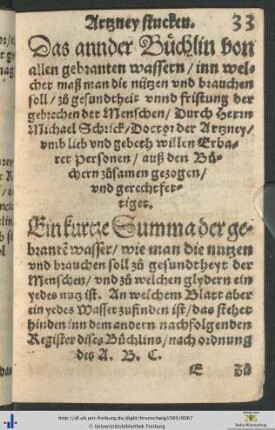 Artzney stucken. 33
Das annder Büchlin von
allen gebranten wassern / inn wel-
cher maß man die nützen vnd brauchen
soll / zů gesundtheit vnnd fristung der
gebrechen der Menschen / Durch Herrn
Michael Schrick / Doctor der Artzney /
vmb lieb vnd gebeth willen Erba-
rer personen / auß den Bů-
chern zůsamen gezogen /
vnd gerechtfer-
tiget.
Ein kurtze Summa der ge-
brantē wasser / wie man die nutzen
vnd brauchen soll zů gesundtheyt der
Menschen / vnd zů welchen glydern ein
yedes nutz ist. An welchem Blatt aber
ein yedes Wasser zufinden ist / das stehet
hinden inn dem andern nachfolgenden
Register dises Büchlins / nach ordnung
des A. B. C.
E Zů
http://dl.ub.uni-freiburg.de/diglit/brunschwig1560/0067
© Universitätsbibliothek Freiburg